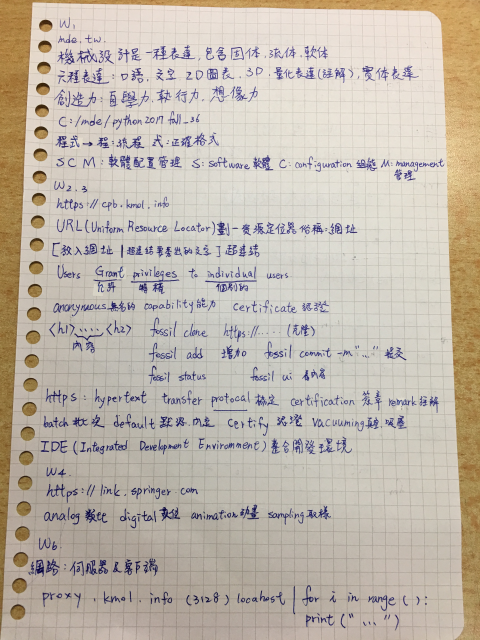 W1
mde.tw.
機械設計是一種表達,包含固体.流体.軟体
六種表達:口語.文字 2D圖表.3D.量化表達(註解),實体表達
創造力:自學力.執行力.想像力
C:/mde/python2017 fall_36
程式→程:流程 式:正確格式
SCM:軟體配置管理 S:software 軟體 C:configuration 組態 M:management
管理
W2.3
https://cpb.kmol.info
URL(Uniform Resource Locator)劃一資源定位器 俗稱:網址
[放入網址|超連結要叫出的文字]超連結
Users Grant privileges to individual users
允許 特權 個別的
anonymous無名的 capability能力 certificate 認證
<h1>.....<h2> fossil clone https://..... (克隆)
內容 fossil add 增加 fossil commit -m"..." 提交
fossil status fossil ui 看內容
https: hypertext transfer protocal 協定 certification 簽章 remark 註解
batch 批次 default 默認.內定 certify 認證 vacuuming 吸塵
IDE(Integrated Development Environment)整合開發環境
W4.
https://link.springer.com
analog 類比 digital 數位 animation動畫 sampling 取樣
W6.
網路:伺服器&客戶端
proxy.kmol.info (3128) locahost | for i in range ( ):
print("...")